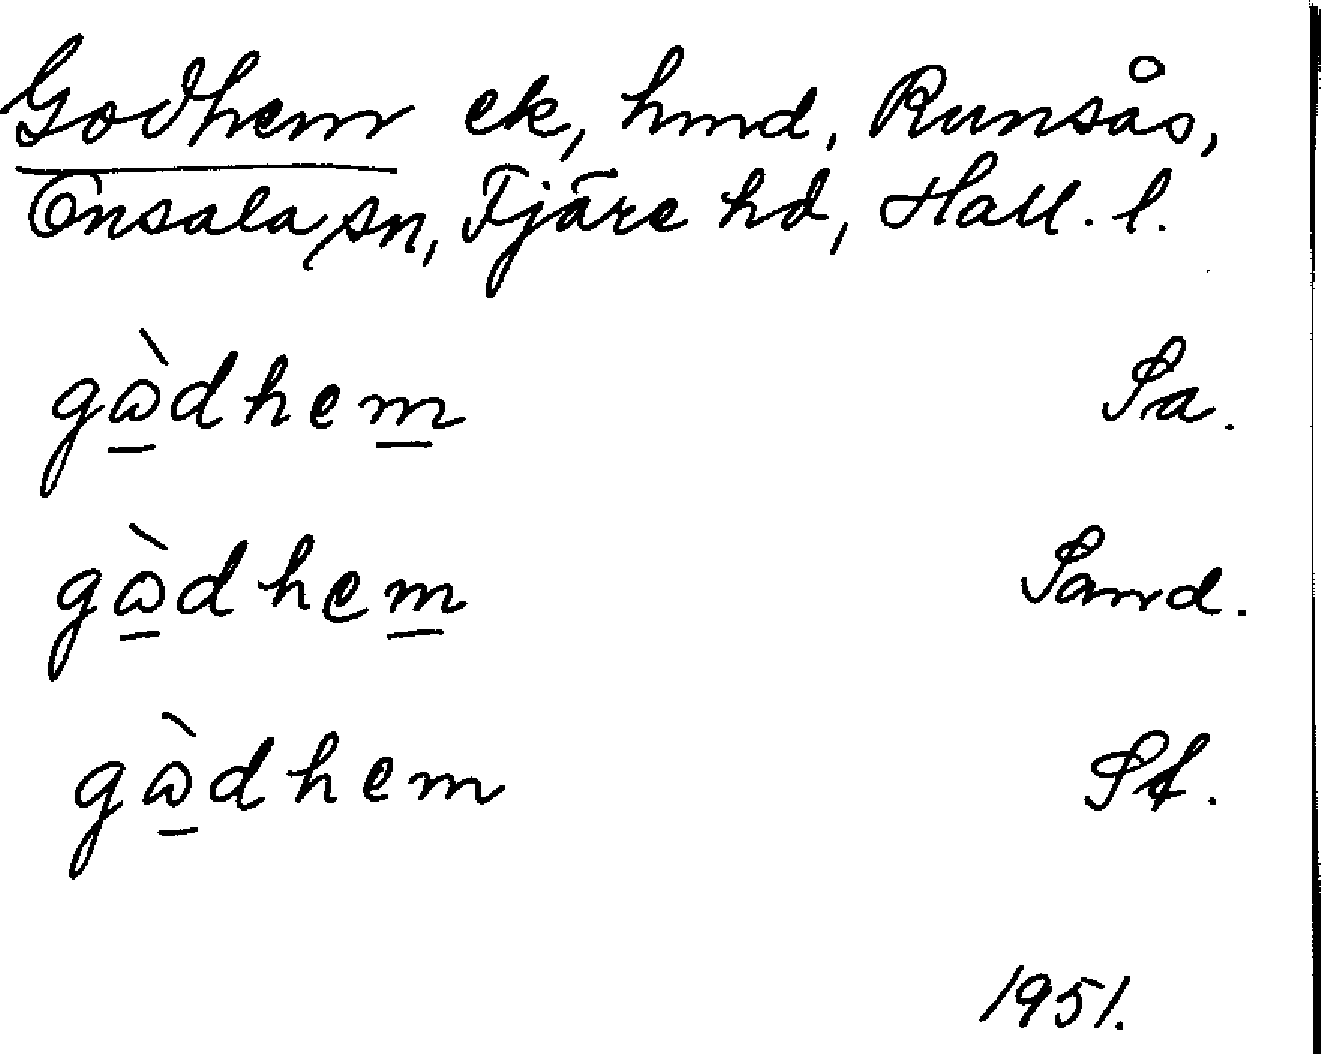 Godhem ek, hmd. Runsås,
Onsala sn, Fjäre hd, Hall. l.
gὼdhem Sa.
gὼdhem Sand.
gὼdhem St.
1951.